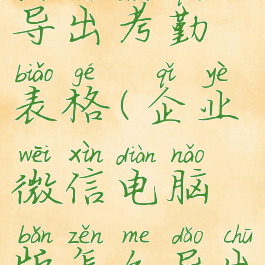 导出考勤
biǎo gé qǐ yè
表格(企业
wēi xìn diàn nǎo
微信电脑
bǎn zěn me dǎo chū
版怎么导出